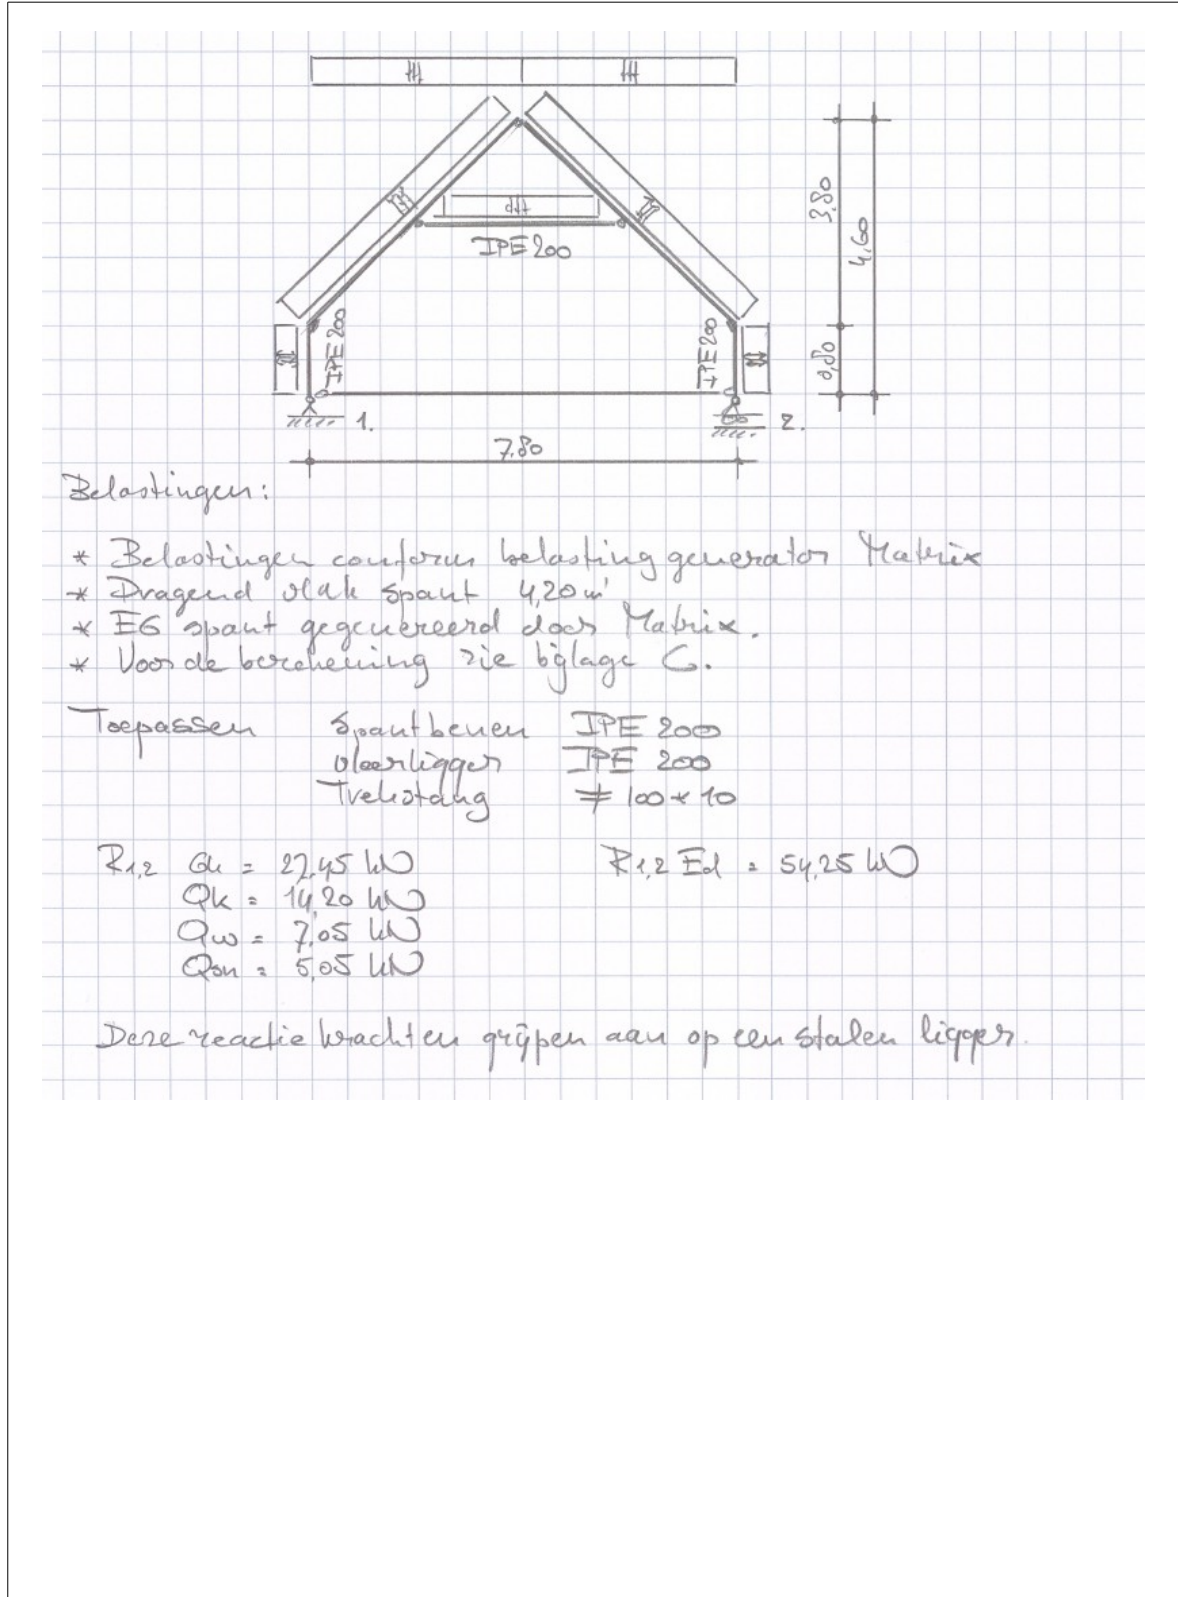 IPE 200
3,80
4,60
IPE 200
IPE 200
0,80
1.
2.
7,80
Belastingen:
* Belastingen conform belasting generator Matrix
* Dragend vlak spant 4,20 m'
* EG spant gegenereerd door Matrix.
* Voor de berekening zie bijlage C.
Toepassen Spantbenen IPE 200
vloerligger IPE 200
Trekstang ≠ 100 * 10
R1,2 Gk = 27,45 kN R1,2 Ed = 54,25 kN
Qk = 14,20 kN
Qw = 7,05 kN
Qsn = 5,05 kN
Deze reactie krachten grijpen aan op een stalen ligger.